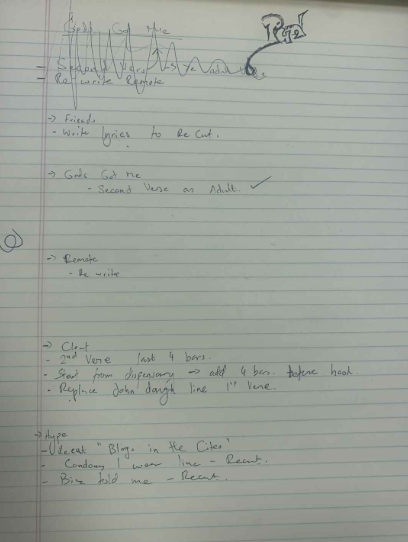 Gods Got Me
- Second Verse
- Re write Remote
-> Friends
- Write lyrics to Re Cut.
-> Gods Got Me
- Second Verse on Adult.
-> Remote
- Re write
-> Clout
- 2nd Verse last 4 bars.
- Start from dispensary -> add 4 bars before hook
- Replace John dough line 1st Verse
-> Hype
- "in the Cites"
- Condoms I wear line - Recut.
- told me - Recut.